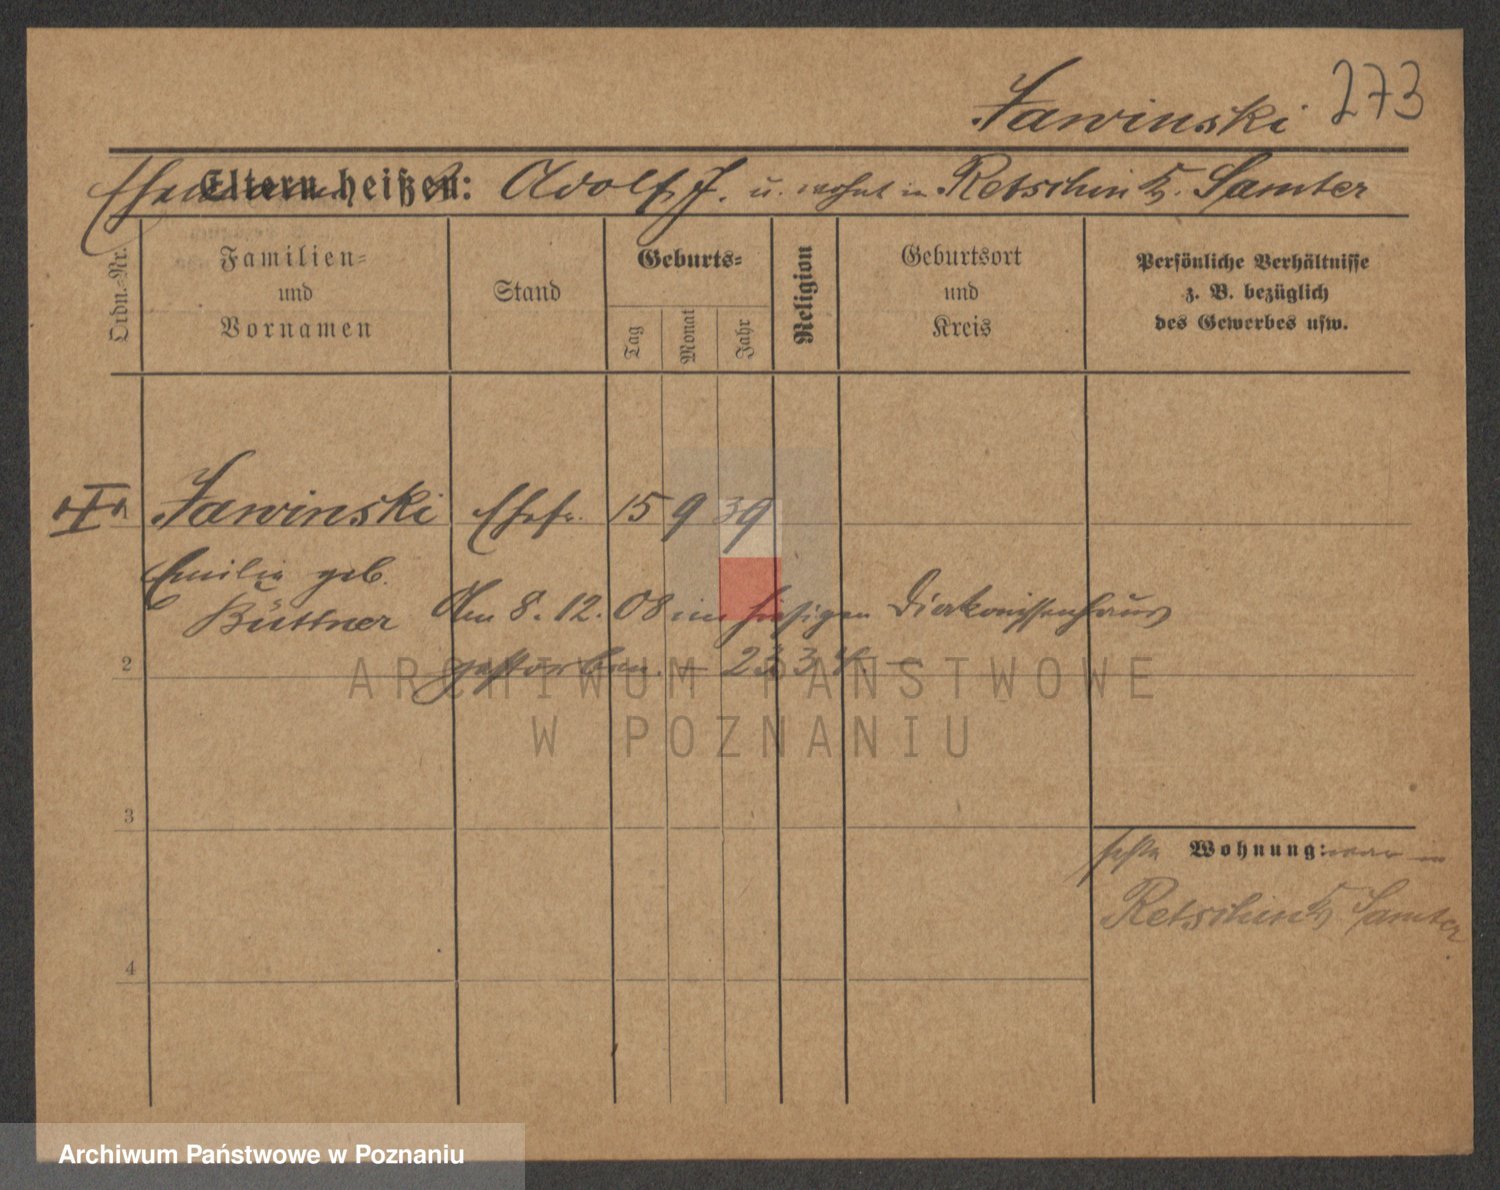 Jawinski 273
Eltern heißen: Adolf J. u. wohnt in Retschin Kr. Samter
Ordn.-Nr.
Familien-
und
Vornamen
Stand
Geburts-
Tag
Monat
Jahr
Religion
Geburtsort
und
Kreis
Persönliche Verhältnisse
z. B. bezüglich
des Gewerbes usw.
Jawinski Ehefr. 15 9 39
Emilie geb.
Büttner Am 8. 12. 08 im hiesigen Diakonissenhaus
2 gestorben. — 2334 —
ARCHIWUM PAŃSTWOWE
W POZNANIU
3
letzte Wohnung: war in
Retschin Kr Samter
4
Archiwum Państwowe w Poznaniu